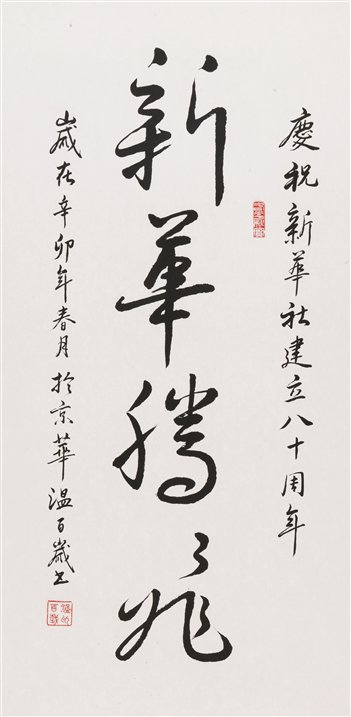 慶祝新華社建立八十周年
新華騰飛
歲在辛卯年春月於京華溫百歲书